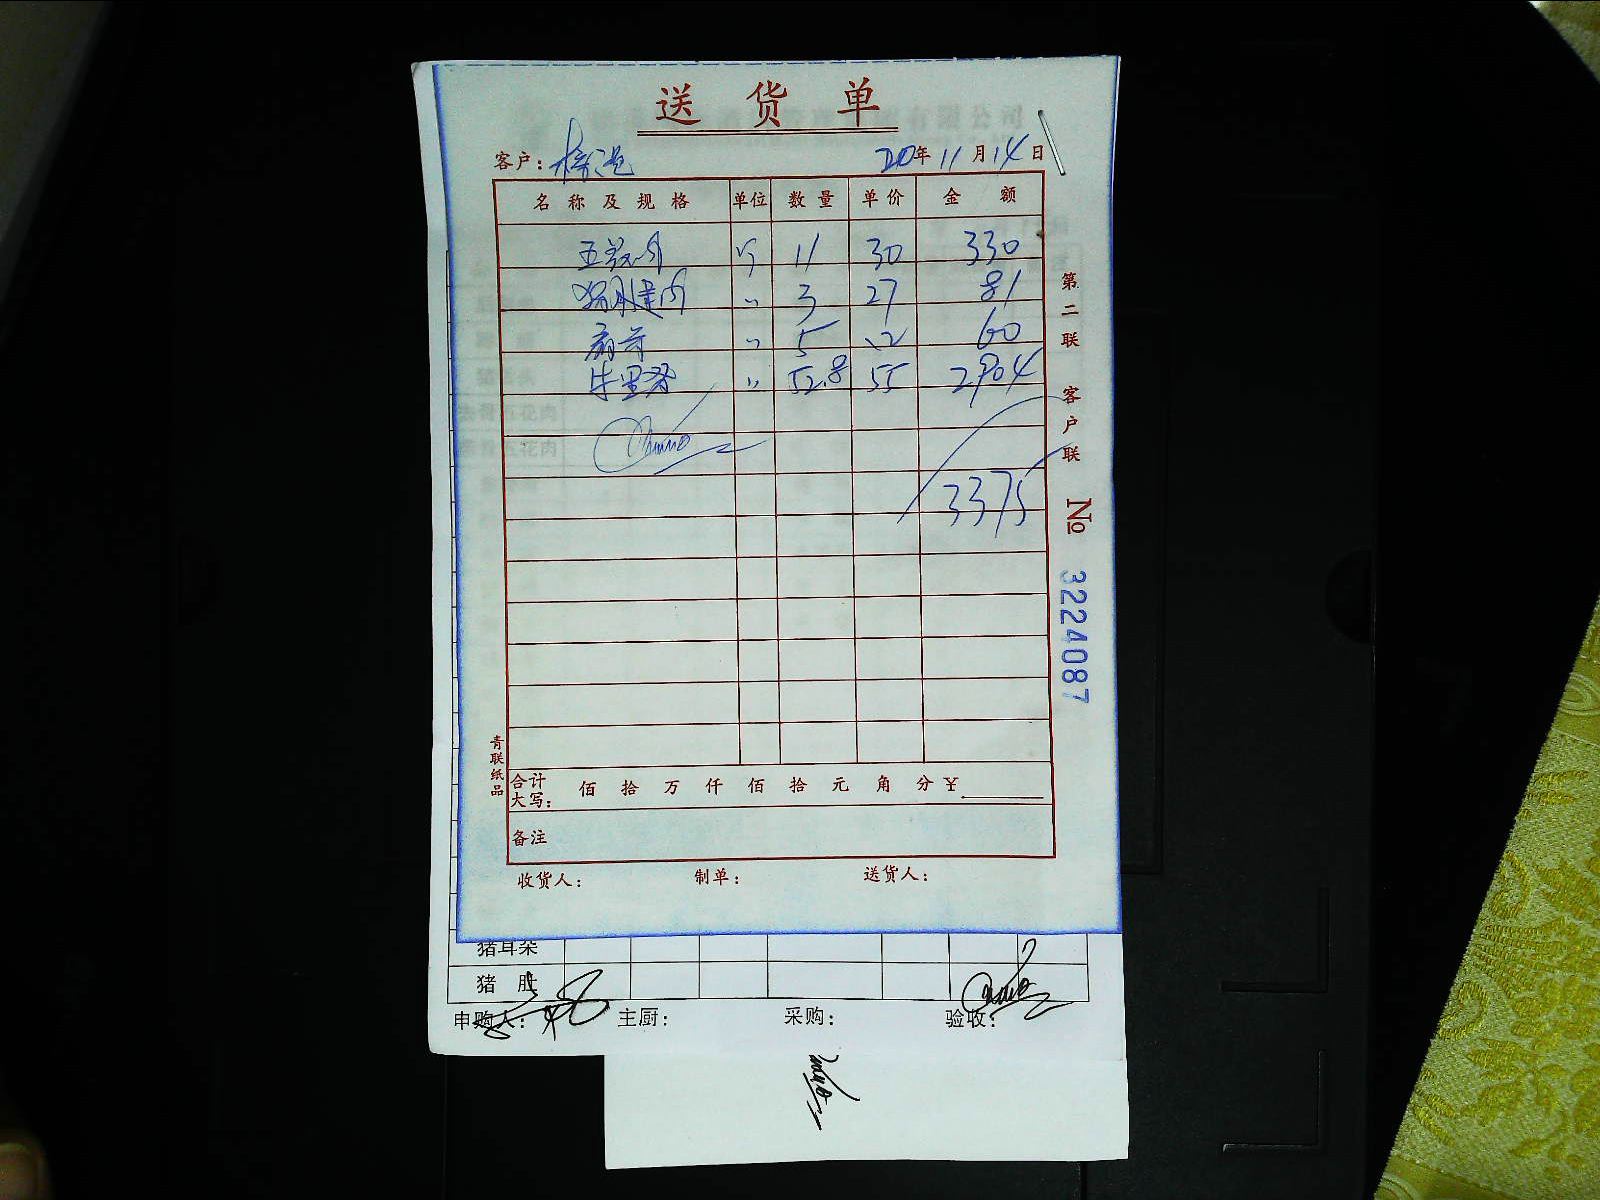 送货单
客户: 20年11月14日
名称及规格 单位 数量 单价 金额
五花肉 斤 11 30 330
猪月建肉 〃 3 27 81
扇骨 〃 5 12 60
牛里脊 〃 52.8 55 2904
3375
合计大写: 佰 拾 万 仟 佰 拾 元 角 分 ¥
备注
收货人: 制单: 送货人:
第二联 客户联 No 3224087
青联纸品
猪耳朵
猪肚
申购人: 主厨: 采购: 验收: